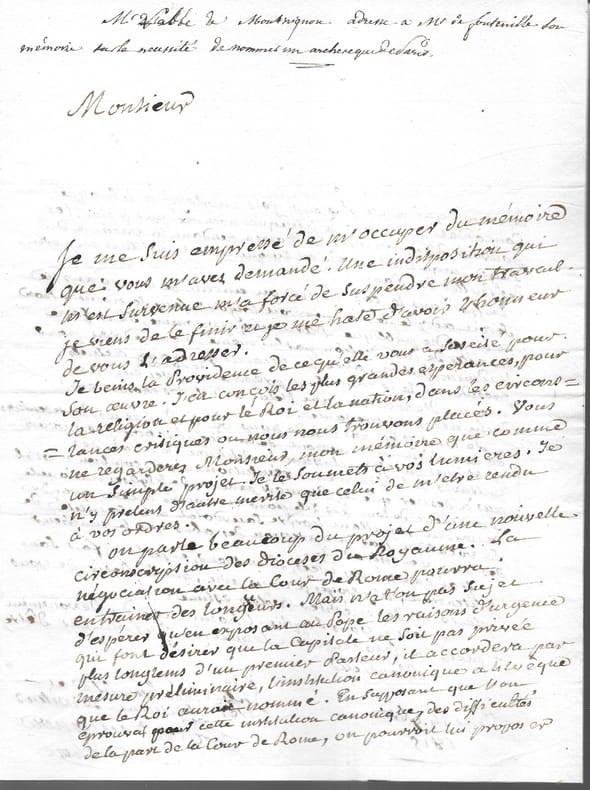 Mr l'abbé de Montrignon adresse a Mr de fonteville son
mémoire sur la necessité de nommer un archeveque de Paris.
Monsieur
Je me suis empressé de m'occuper du mémoire
que vous m'avez demandé. Une indisposition qui
m'est survenue m'a forcé de suspendre mon travail.
je viens de le finir et je me hate d'avoir l'honneur
de vous l'adresser.
Je benis la Providence de ce qu'elle vous a suscité pour
son œuvre. J'en conçois les plus grandes esperances, pour
la religion et pour le Roi et la nation, dans les circons=
=tances critiques ou nous nous trouvons placés. Vous
ne regarderes Monsieur, mon mémoire que comme
un simple projet. Je le soumets à vos lumieres. Je
n'y prétens d'autre merite que celui de m'etre rendu
à vos ordres.
On parle beaucoup du projet d'une nouvelle
circonscription des dioceses du Royaume. La
négociation avec la Cour de Rome pourra
entrainer des longeurs. Mais n'a t'on pas sujet
d'espérer qu'en exposant au Pape les raisons d'urgence
qui font désirer que la Capitale ne soit pas privée
plus longtems d'un premier Pasteur, il accordera par
mesure préliminaire, l'institution canonique a l'évêque
que le Roi auroit nommé. En supposant que l'on
eprouvat pour cette institution canonique, des difficultés
de la part de la Cour de Rome, on pourroit lui proposer